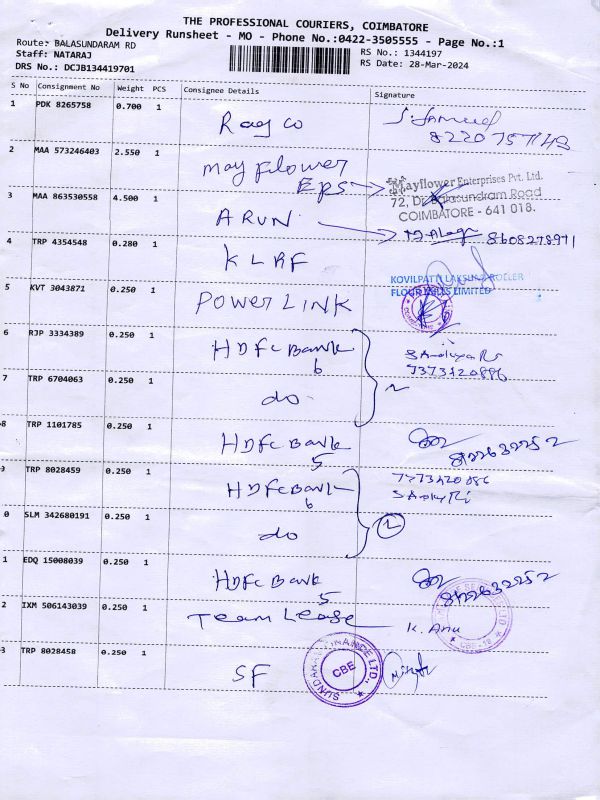 THE PROFESSIONAL COURIERS, COIMBATORE
Delivery Runsheet - MO - Phone No.:0422-3505555 - Page No.:1
Route: BALASUNDARAM RD
Staff: NATARAJ
DRS No.: DCJB134419701
RS No.: 1344197
RS Date: 28-Mar-2024
S No Consignment No Weight PCS Consignee Details Signature
1 PDK 8265758 0.700 1 Rag Co
2 MAA 573246403 2.550 1 may flower EPS
Mayflower Enterprises Pvt. Ltd.
72, Dr. Balasundram Road
COIMBATORE - 641 018.
3 MAA 863530558 4.500 1 ARUN 8608278971
4 TRP 4354548 0.280 1 KLRF
KOVILPATTI LAKSHMI ROLLER
FLOUR MILLS LIMITED
5 KVT 3043871 0.250 1 POWER LINK
6 RJP 3334389 0.250 1 HDFC Bank 6
7373420886
7 TRP 6704063 0.250 1 do
8 TRP 1101785 0.250 1 HDFC Bank 5 8122632252
9 TRP 8028459 0.250 1 HDFC Bank 6
7373420886
0 SLM 342680191 0.250 1 do 2
1 EDQ 15008039 0.250 1 HDFC Bank 5 8122632252
2 IXM 506143039 0.250 1 Team Lease K. Anu
3 TRP 8028458 0.250 1 SF
SUNDARAM FINANCE LTD., CBE